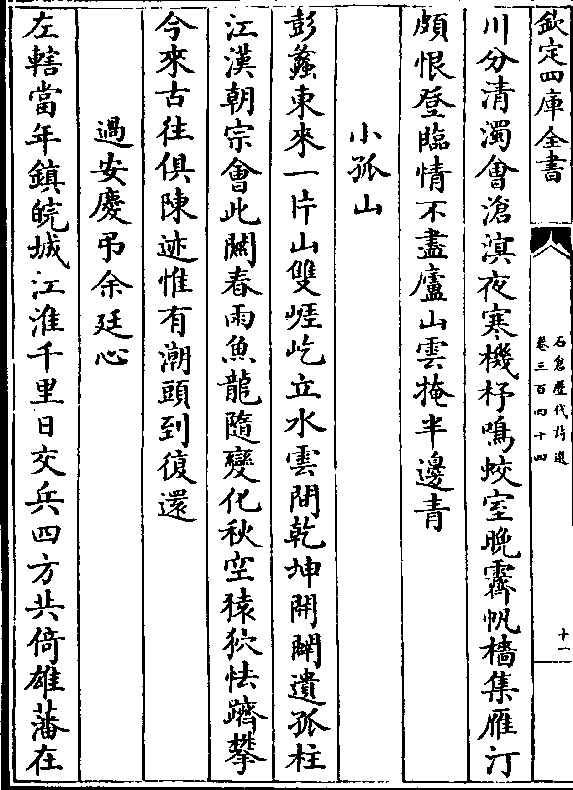 欽定四庫全書
石倉歷代詩選
卷三百四十四
十一
川分清濁會滄溟夜寒機杼鳴蛟室晚霽帆檣集雁汀
頗恨登臨情不盡廬山雲掩半邊青
小孤山
彭蠡東來一片山雙崕屹立水雲間乾坤開闢遺孤柱
江漢朝宗會此闗春雨魚龍隨變化秋空猿狖怯躋攀
今來古往俱陳迹惟有潮頭到復還
過安慶弔余廷心
左轄當年鎮皖城江淮千里日交兵四方共倚雄藩在